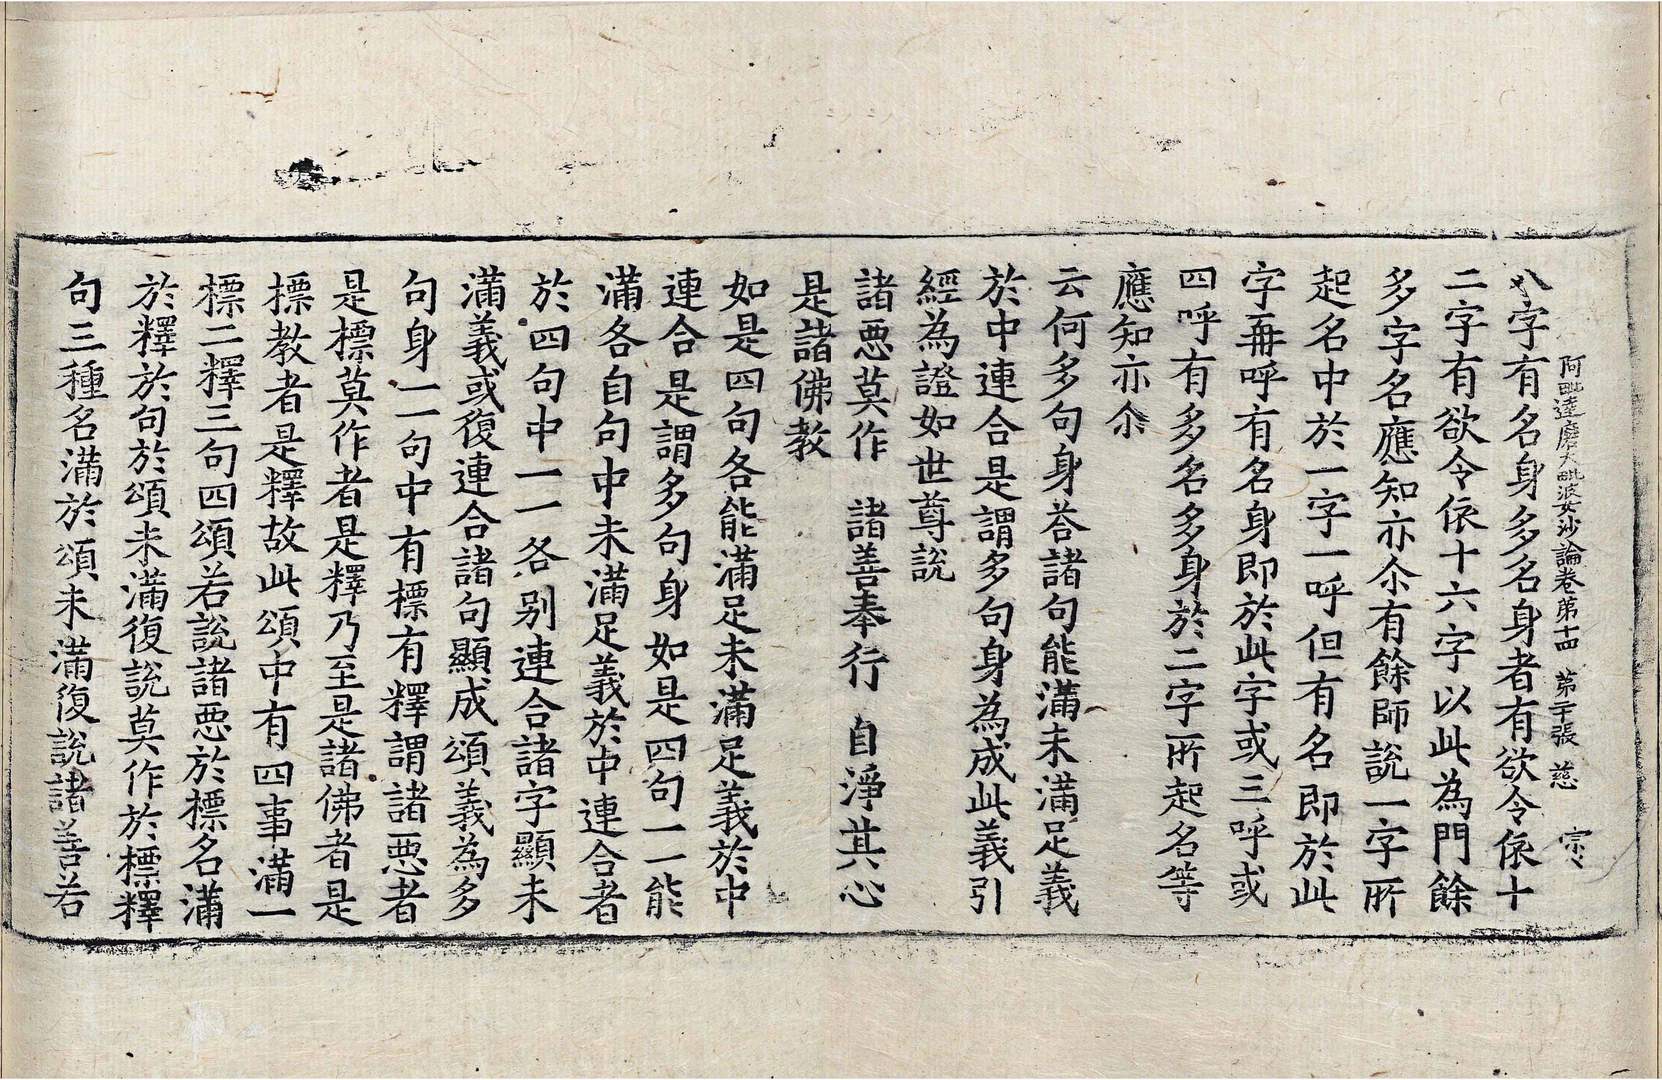 阿毗達磨大毗婆沙論卷第十四 第二十張 慈 宗之
八字有名身多名身者有欲令依十
二字有欲令依十六字以此為門餘
多字名應知亦尒有餘師說一字所
起名中於一字一呼但有名即於此
字再呼有名身即於此字或三呼或
四呼有多名多身於二字所起名等
應知亦尒
云何多句身荅諸句能滿未滿足義
於中連合是謂多句身為成此義引
經為證如世尊說
諸惡莫作 諸善奉行 自淨其心
是諸佛教
如是四句各能滿足未滿足義於中
連合是謂多句身如是四句一一能
滿各自句中未滿足義於中連合者
於四句中一一各別連合諸字顯未
滿義或復連合諸句顯成頌義為多
句身一一句中有標有釋謂諸惡者
是標莫作者是釋乃至是諸佛者是
標教者是釋故此頌中有四事滿一
標二釋三句四頌若說諸惡於標名滿
於釋於句於頌未滿復說莫作於標釋
句三種名滿於頌未滿復說諸善若